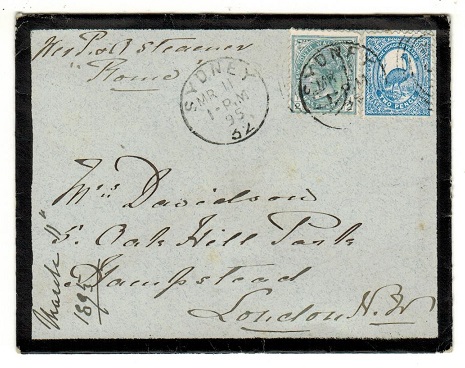 Per P & O steamer
"Rome"
SYDNEY
MR 11
1-PM
95
32
SYDNEY
MR 11
TWO PENCE
Mrs Davidson
5. Oak Hill Park
Hampstead
London N.W
March 11th
1895